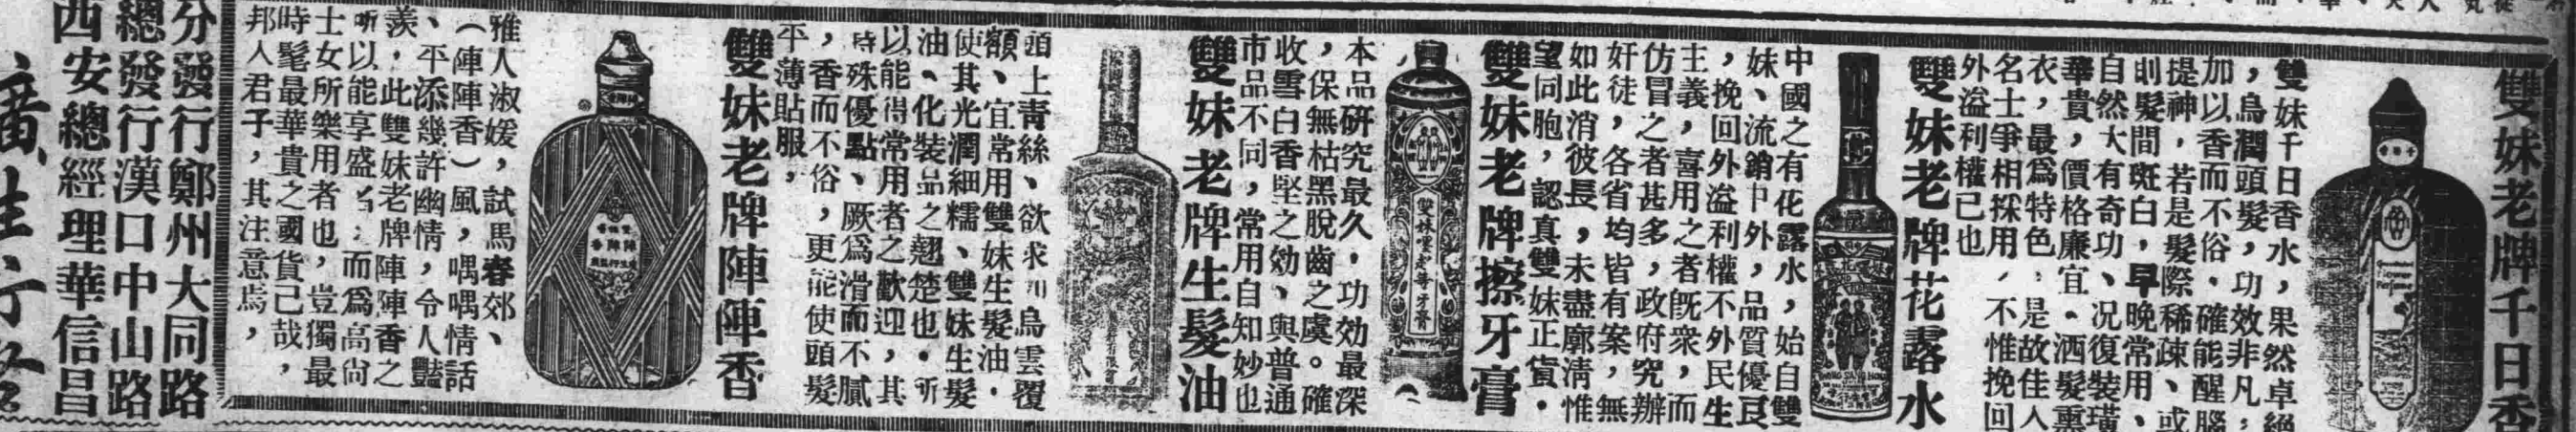 雙妹老牌千日香
雙妹千日香水，果然卓絕
，烏潤頭髮，功效非凡，
加以香而不俗，確能醒腦
提神，若是髮際稀疎、或
則髮間斑白，早晚常用、
自然大有奇功、况復裝璜
華貴，價格廉宜。洒髮熏
衣，最爲特色，是故佳人
名士爭相採用，不惟挽回
外溢利權已也
雙妹老牌花露水
中國之有花露水，始自雙
妹、流銷中外，品質優良
，挽回外溢利權不外民生
主義，喜用之者既衆，而
仿冒之者甚多，政府究辦
奸徒，各省均皆有案，無
如此消彼長，未盡廓清惟
望同胞，認真雙妹正貨。
雙妹老牌擦牙膏
本品研究最久，功効最深
，保無枯黑脫齒之虞。確
收雪白香堅之効、與普通
市品不同，常用自知妙也
雙妹老牌生髮油
頭上青絲、欲求烏雲覆
額、宜常用雙妹生髮油．
使其光潤細糯、雙妹生髮
油、化裝品之翹楚也．所
以能得常用者之歡迎，其
特殊優點、厥爲滑而不膩
，香而不俗，更能使頭髮
平薄貼服，
雙妹老牌陣陣香
雅人淑媛，試馬春郊、
（陣陣香）風，喁喁情話
、平添幾許幽情，令人豔
羨，此雙妹老牌陣陣香之
所以能享盛名，而爲高尙
士女所樂用者也，豈獨最
時髦最華貴之國貨己哉，
邦人君子，其注意焉，
分發行鄭州大同路
總發行漢口中山路
西安總經理華信昌
廣生行